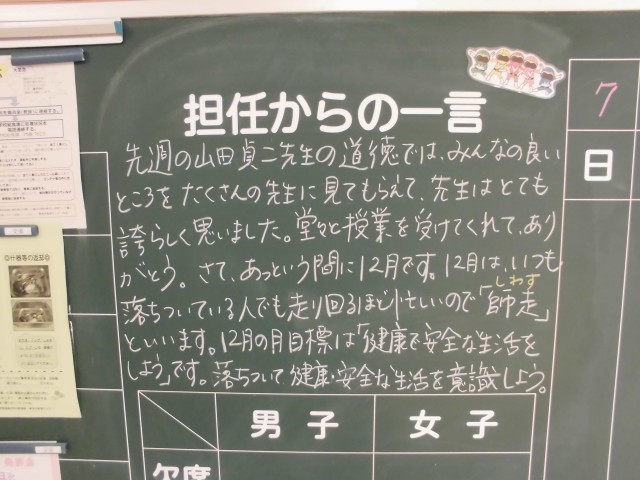 担任からの一言
先週の山田貞二先生の道徳では、みんなの良い
ところをたくさんの先生に見てもらえて、先生はとても
誇らしく思いました。堂々と授業を受けてくれて、あり
がとう。さて、あっという間に12月です。12月は、いつも
落ちついている人でも走り回るほど忙しいので「師走」
しわす
といいます。12月の月目標は「健康で安全な生活を
しよう」です。落ちついて健康・安全な生活を意識しよう。
7
日
男子
女子
欠席